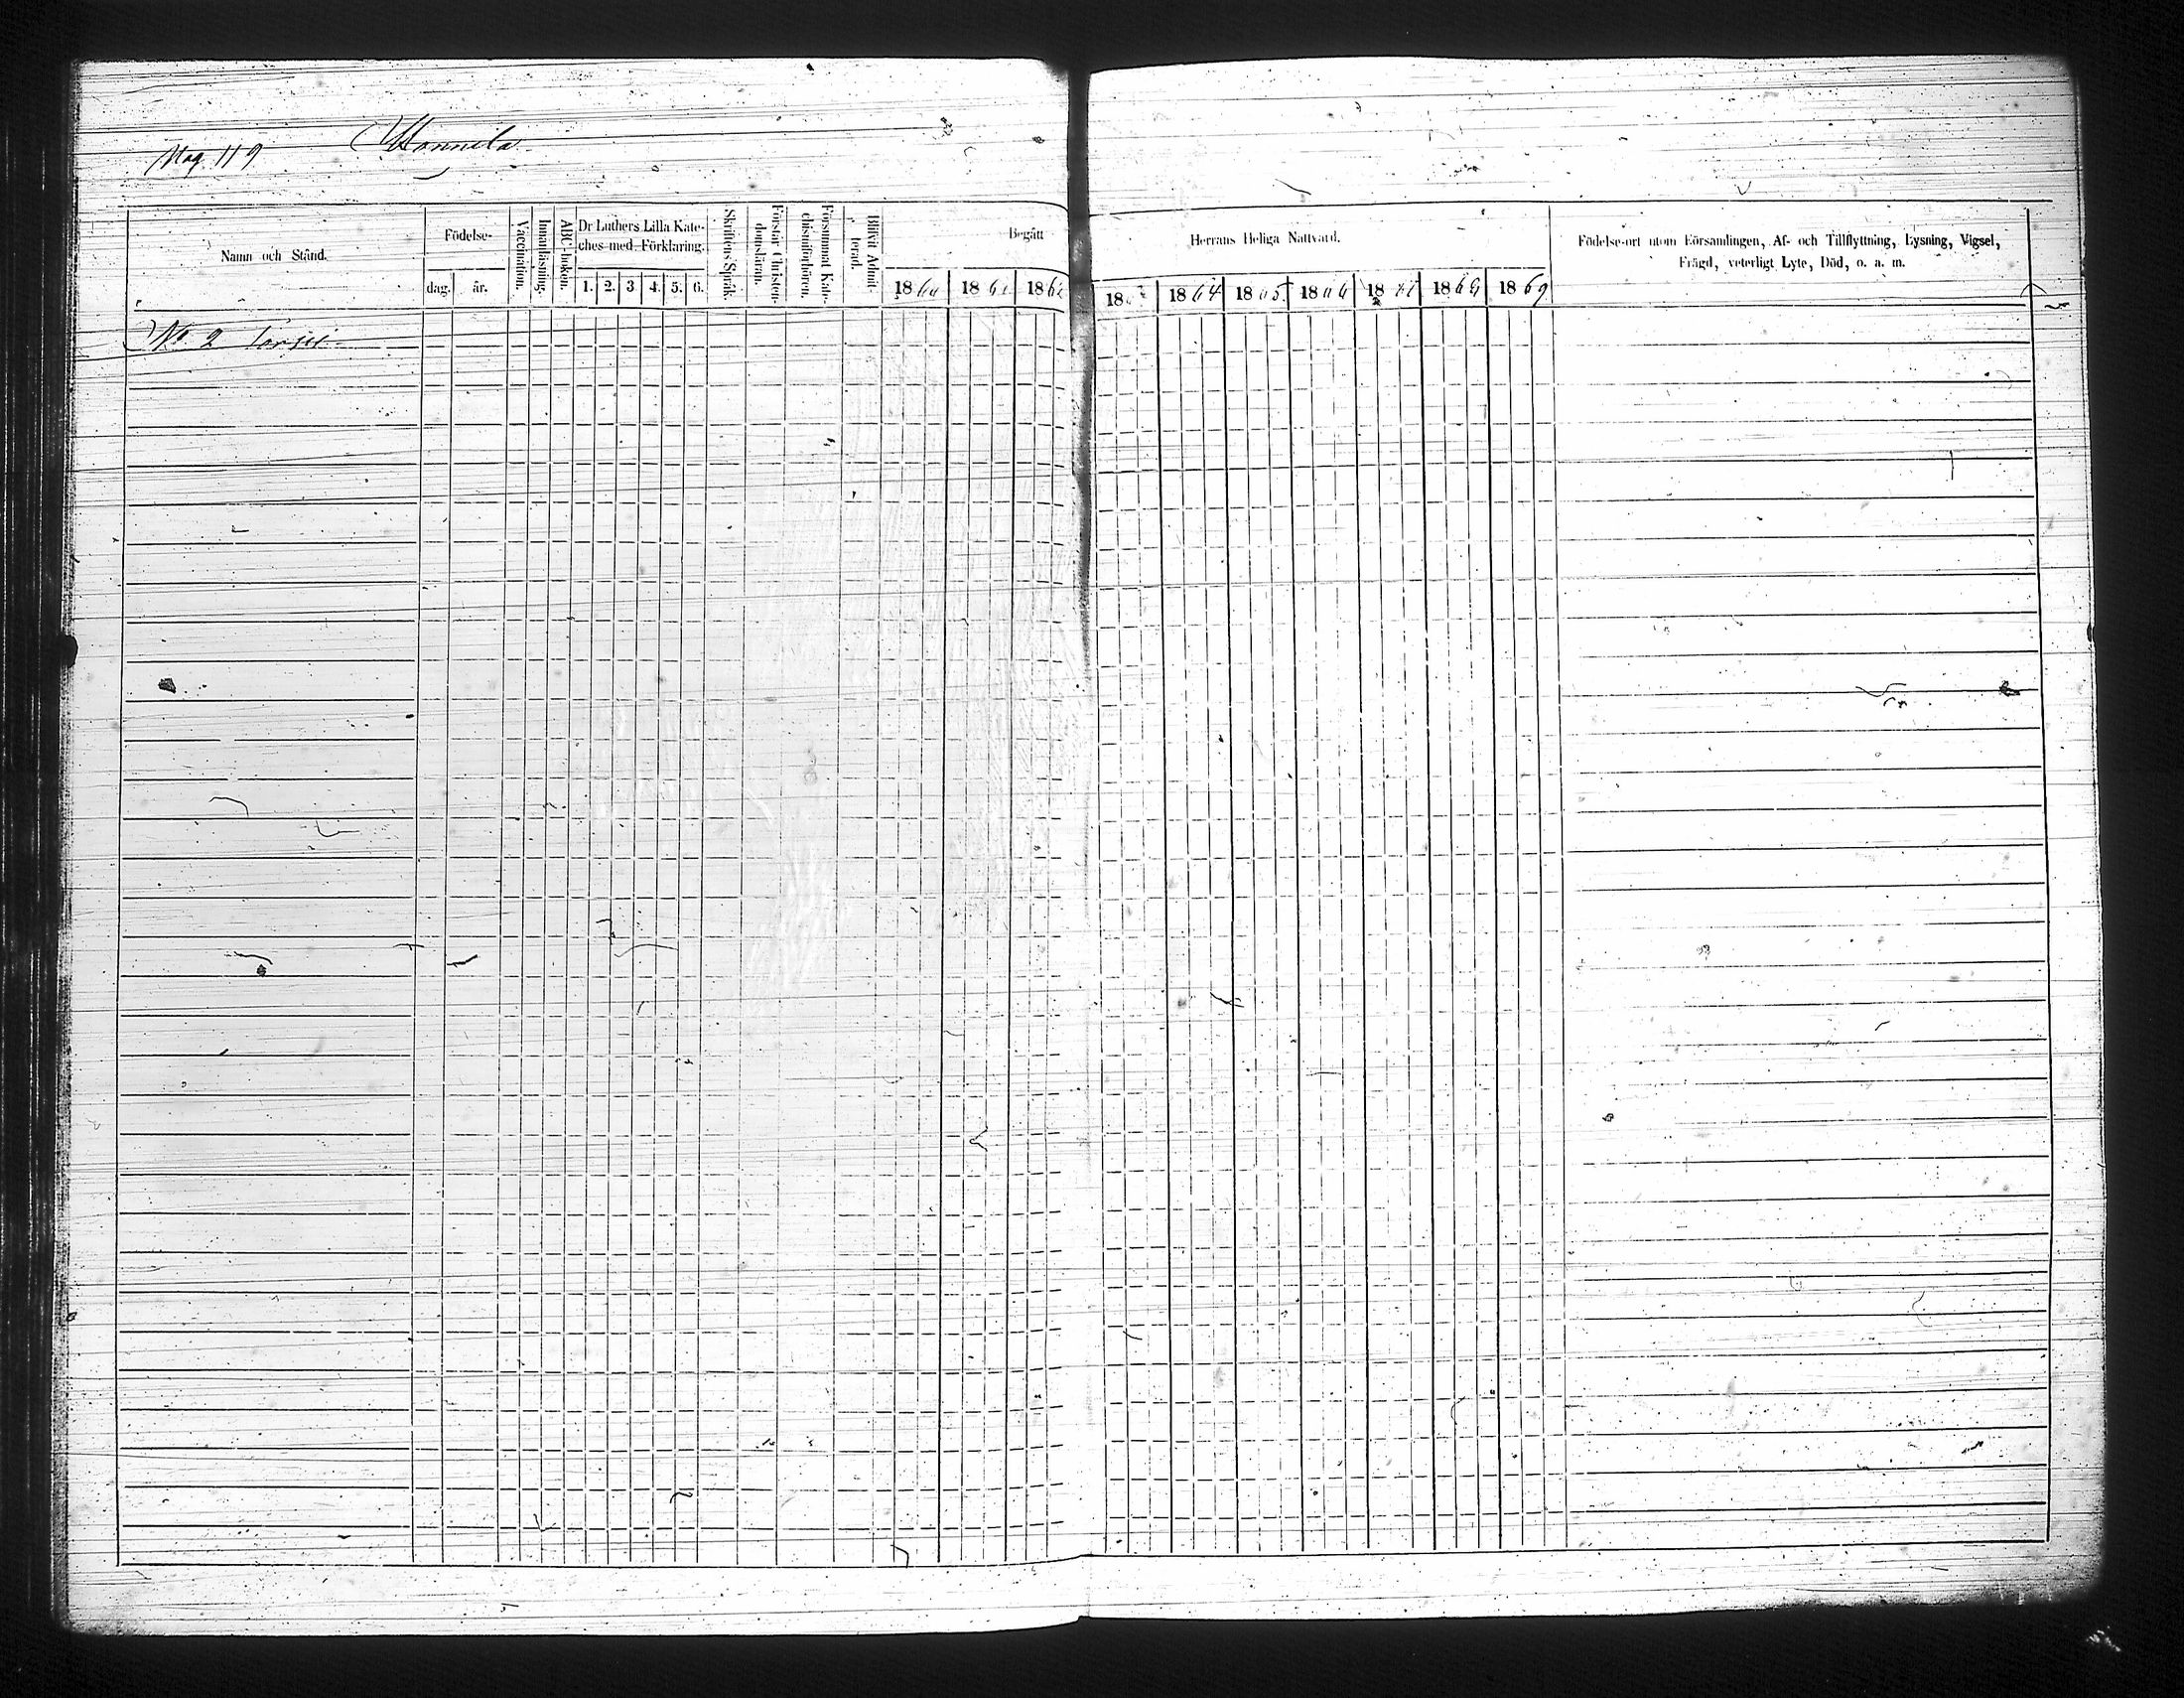 Pag. 119 Monnila
Namn och Stånd.
Födelse-
dag. år.
Vaccination.
Innanläsning.
ABC-boken.
Dr Luthers Lilla Kate-
ches med Förklaring.
1. 2. 3 4. 5. 6.
Skriftens Språk.
Förstår Christen-
domsläran.
Försummat Kate-
chismiförhören.
Blifvit Admit-
terad.
Begått
1860 1861 1862
Herrans Heliga Nattvard.
1863 1864 1865 1866 1867 1868 1869
Födelse-ort utom Församlingen, Af- och Tillflyttning, Lysning, Vigsel,
Frägd, veterligt Lyte, Död, o. a. m.
No 2